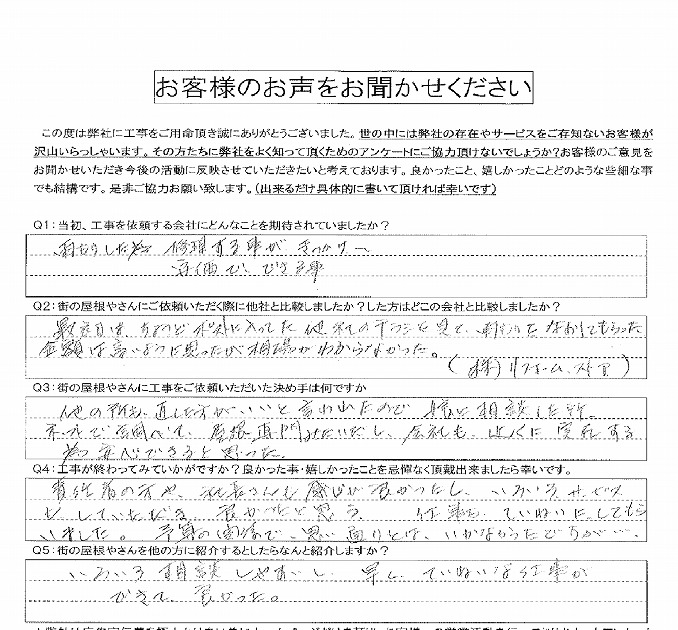 お客様のお声をお聞かせください
この度は弊社に工事をご用命頂き誠にありがとうございました。世の中には弊社の存在やサービスをご存知ないお客様が
沢山いらっしゃいます。その方たちに弊社をよく知って頂くためのアンケートにご協力頂けないでしょうか？お客様のご意見を
お聞かせいただき今後の活動に反映させていただきたいと考えております。良かったこと、嬉しかったことどのような些細な事
でも結構です。是非ご協力お願い致します。（出来るだけ具体的に書いて頂ければ幸いです）
Q1：当初、工事を依頼する会社にどんなことを期待されていましたか？
雨もりした為 修理する事が きっかけ
Q2：街の屋根やさんにご依頼いただく際に他社と比較しましたか？した方はどこの会社と比較しましたか？
ちょうど ポストに入ってた 他社のチラシを見て、雨もりをなおしてもらった
金額は高いように思ったが相場がわからなかった。
Q3：街の屋根やさんに工事をご依頼いただいた決め手は何ですか
他の所も、直した方がいいと言われたので 娘に相談した所、
ネットで調べて、屋根専門みたいだし、会社も、近くに実在する
為 安心できると思った。
Q4：工事が終わってみていかがですか？良かった事・嬉しかったことを忌憚なく頂戴出来ましたら幸いです。
責任者の方や、社長さんも感じが良かったし、いろいろサービス
もしていただき 良かったと思う。 仕事も、ていねいにしてもら
いました。 予算の関係で、思い通りとは、いかなかったですが…
Q5：街の屋根やさんを他の方に紹介するとしたらなんと紹介しますか？
いろいろ相談しやすいし、早く、ていねいな仕事が
できて、良かった。